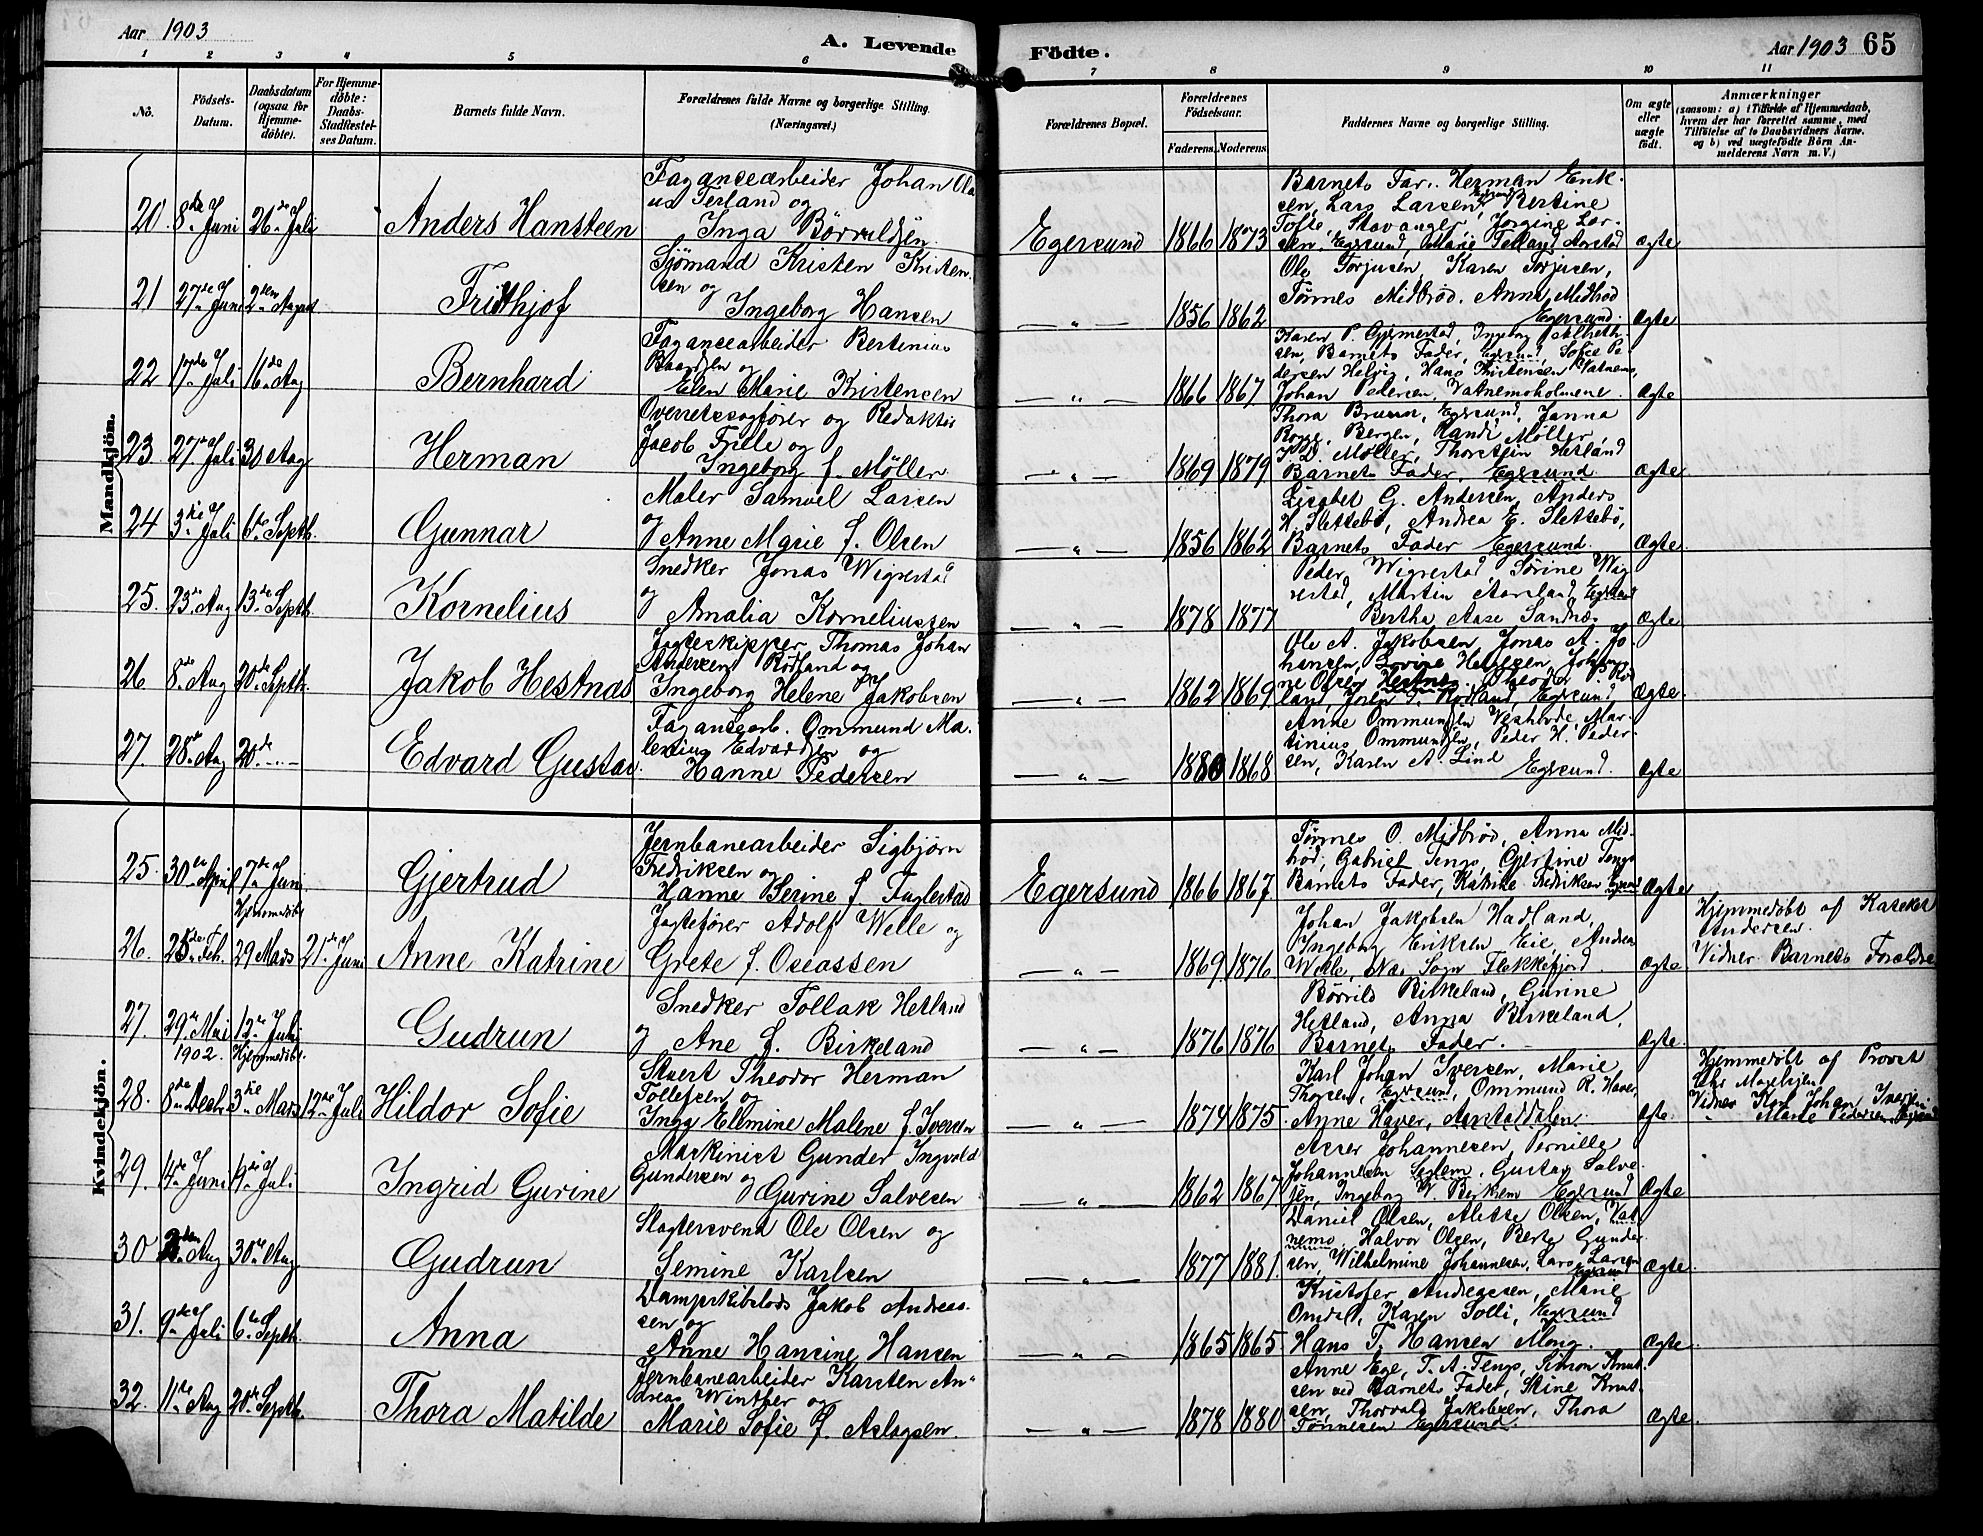 Aar 1903
A. Levende
Födte.
Aar 1903 65
1 2 3 4 5 6 7 8 9 10 11
No.
Födsels-
Datum.
Daabsdatum
(ogsaa for
Hjemme-
döbte).
For Hjemme-
döbte:
Daabs-
Stadfæstel-
ses Datum.
Barnets fulde Navn.
Forældrenes fulde Navne og borgerlige Stilling.
(Næringsvei.)
Forældrenes Bopæl.
Forældrenes
Födselsaar.
Faderens. Moderens.
Faddernes Navne og borgerlige Stilling.
Om ægte
eller
uægte
födt.
Anmærkninger
(saasom: a) i Tilfælde af Hjemmedaab,
hvem der har forrettet samme, med
Tilföielse af to Daabsvidners Navne.
og b) ved uægtefödte Börn An-
melderens Navn m. V.)
Mandkjön.
20. 8de Juni 26de Juli
Anders Hansteen
Fayancearbeider Johan Ola
us Terland og
Inga Børrildsen
Egersund 1866 1873
Barnets Far. Herman Erik-
sen, Lars Larsen, Egersund Bertine
Tofte, Stavanger, Jorgine Lar-
sen, Egersund, Marie Aarstad
ægte
21 27de Juni 2den August
Frithjof
Sjømand Kristen Kristen-
sen og
Ingeborg Hansen
— " — 1856 1862
Ole Torjusen, Karen Torjusen,
Tønnes Midbrød. Anna Midbrød
Egersund.
ægte
22 17de Juli 16de Aug
Bernhard
Fayancearbeider Bertinius
Baardsen og
Elen Marie Kristensen
— " — 1866 1867
Karen P. Gjermestad, Ingeborg
sen, Barnets Fader, Egersund, Sofie Pe-
dersen Helvig, Hans Kristensen Vatnemo,
Johan Pedersen, Vatnemoholmene.
ægte
23 27de Juli 30 Aug
Herman
Overretssagfører og Redaktør
Jacob Feille og
Ingeborg f. Møller
— " — 1869 1879
Thora Bruun, Egersund, Janna
Rogge, Bergen, Randi Møller,
Møller, Thorstein Hetland
Barnets Fader, Egersund
ægte
24 3die Juli 6te Septb.
Gunnar
Maler Samuel Larsen
og Anne Marie f. Olsen
— " — 1856 1862
Lisabet G. Andersen, Anders
H. Slettebø, Andrea E. Slettebø,
Barnets Fader Egersund.
ægte
25. 23de Aug 13de Septb.
Kornelius
Snedker Jonas Wigrestad
og
Amalia Korneliussen
— " — 1878 1877
Peder Wigrestad Sørine Wig-
restad, Martin Aarsland, Egersund
Bertha Aase Sandnæs
ægte
26 8de Aug 20de Septbr.
Jakob Hestnæs
Jagteskipper Thomas Johan
Andersen Rødland og
Ingeborg Helene Jakobsen
— " — 1862 1869
Ole A. Jakobsen Jonas A. Jo-
hansen, Lovise Hansen, Johan-
ne Olsen Hestnes. Theodor P. Rød-
land, Josefa T. Rødland, Egersund
ægte.
27. 28de Aug 20de — " —
Edvard Gustav.
Fayancearb. Ommund Ma-
lenius Edvardsen og
Hanne Pedersen
— " — 1880 1868
Anne Ommundsen Vestbrøde, Mar-
tinius Ommundsen, Peder H. Peder-
sen, Karen A. Lind Egersund.
ægte
Kvindekjön.
25. 30te April 7de Juni.
Gjertrud
Jernbanearbeider Sigbjørn
Fredriksen og
Hanne Serine f. Fuglestad
Egersund 1866 1867
Tønnes O. Midbrød, Anna Mid-
brød, Gabriel Tengs, Gjertine Tengs
Barnets Fader, Katrine Fredriksen Egersund
ægte
26. 25de Feb. Hjemmedøbt 29 Mars 21de Juni
Anne Katrine
Jagtefører Adolf Welle og
Grete f. Oseassen
— " — 1869. 1876
Johan Jakobsen Hadland,
Ingeborg Eriksen Eie, Andrea
Welle, Næs Sogn Flekkefjord.
ægte
Hjemmedøbt af Kateket
Andersen.
Vidner Barnets Forældre
27. 29de Mai 12te Juli
Gudrun
Snedker Tollak Hetland
og Ane f. Birkeland
— " — 1876 1876
Børrild Birkeland, Gurine
Hetland, Anna Birkeland,
Barnets Fader.
ægte
28. 1902. 8de Decbr Hjemmedøbt. 3die Mars 12te Juli
Hildor Sofie
Stuert Theodor Herman
Tollefsen og
Inga Elmine Malene f. Iversen
— " — 1874 1875
Karl Johan Iversen, Marie
Thorsen, Egersund, Ommund R. Haver,
Anne Haver, Aarstaddalen.
ægte.
Hjemmedøbt af Provst
Vidner Karl Johan Iversen
Marie Pedersen Egersund
29. 14de Juni 19de Juli
Ingrid Gurine
Maskinist Gunder Ingvald
Gundersen og
Gurine Salvesen
" — 1862 1867
Asser Johannesen, Pernille
Johannesen Seglem, Gustav Salve-
sen, Ingeborg Egersund
ægte
30 2den Aug 30te Aug.
Gudrun
Slagtersvend Ole Olsen og
Semine Karlsen
— " — 1877 1881.
Daniel Olsen, Alette Olsen, Vat-
nemo, Halvor Olsen, Berte Gunder-
sen, Wilhelmine Johannesen, Lars Larsen
Egersund
ægte.
31. 9de Juli 6te Septb.
Anna
Dampskibslods Jakob Andreas-
sen og
Anne Hansine Hansen
— " — 1865 1865
Kristofer Andreassen, Marie
Omdal, Karen Solli, Egersund
Hans T. Hansen Mong.
ægte.
32. 11te Aug 20de Septb.
Thora Matilde
Jernbanearbeider Karsten An-
dreas Winther og
Marie Sofie f. Aslagsen.
— " — 1878 1880
Anne Ege, T. A. Tengs, Simon Knut-
sen ved Barnets Fader, Stine Knut-
sen, Thorvald Jakobsen, Thora
Tønnesen Egersund.
ægte